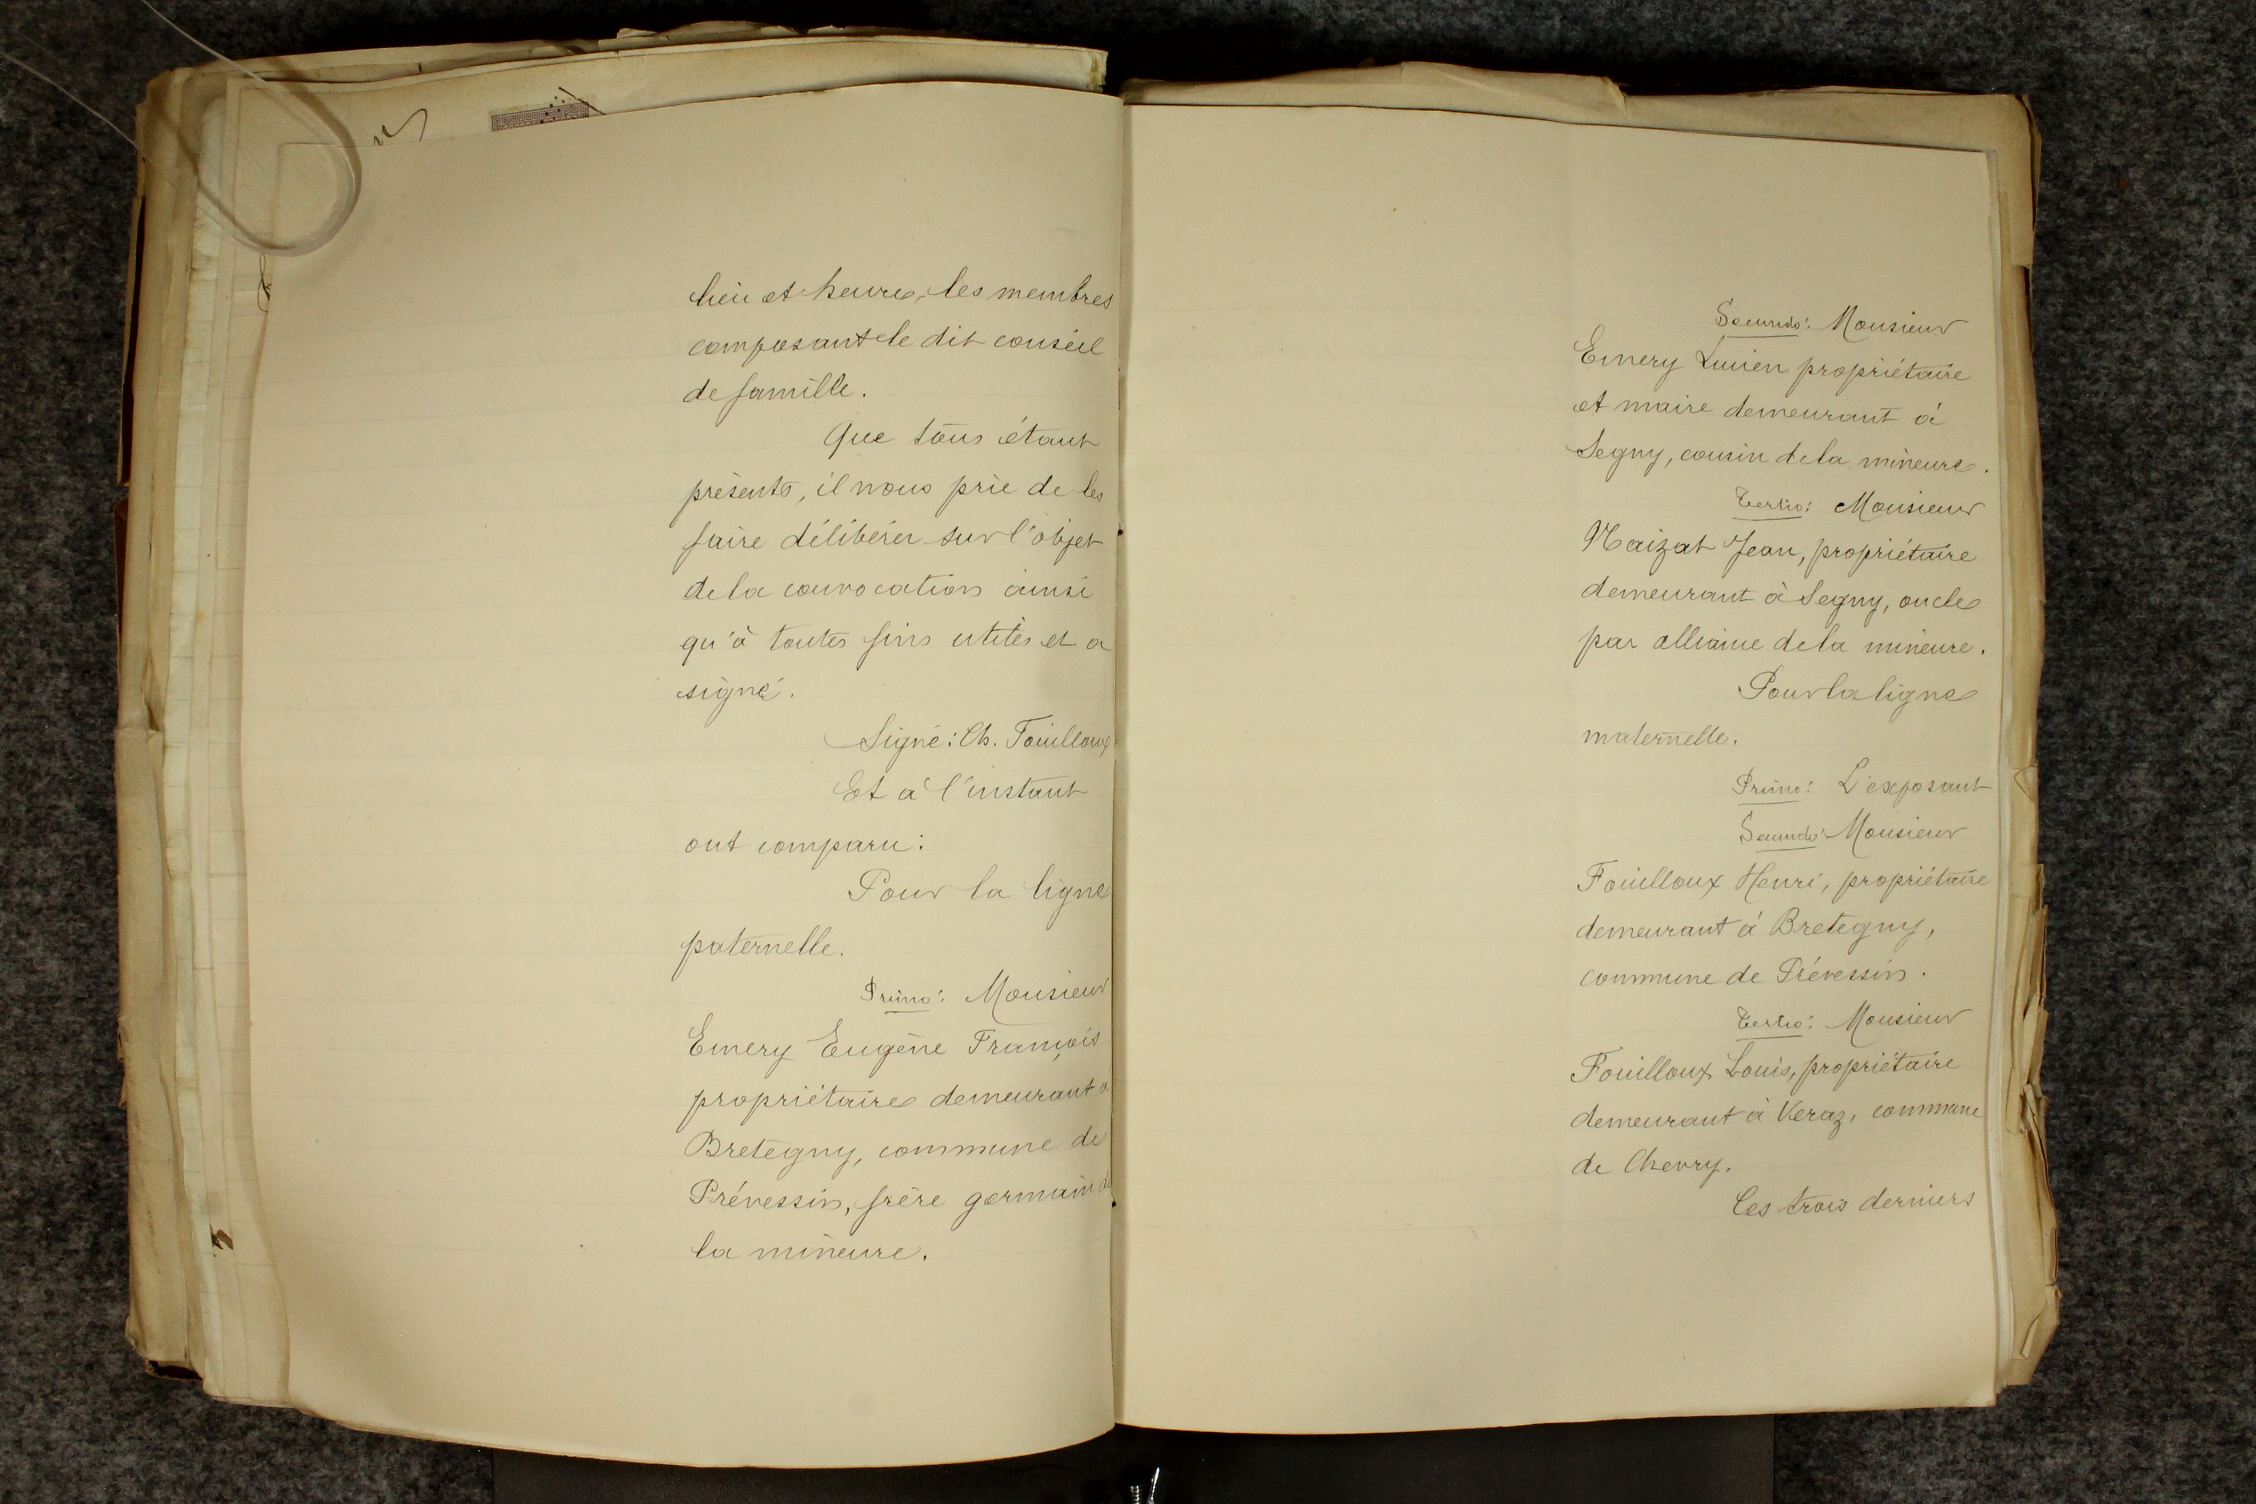 lieu et heure, les membres
composant le dit conseil
de famille.
Que tous étant
présents, il nous prie de les
faire délibérer sur l'objet
de la convocation ainsi
qu'à toutes fins utiles et a
signé.
Signé: Ch. Fouilloux
Et à l'instant
ont comparu:
Pour la ligne
paternelle.
Primo: Monsieur
Emery Eugène François
propriétaire demeurant à
Bretegny, commune de
Prévessin, frère germain de
la mineure.
Secundo: Monsieur
Emery Lucien propriétaire
et maire demeurant à
Segny, cousin de la mineure.
Tertio: Monsieur
Maizat Jean, propriétaire
demeurant à Segny, oncle
par alliance de la mineure.
Pour la ligne
maternelle.
Primo: L'exposant
Secundo: Monsieur
Fouilloux Henri, propriétaire
demeurant à Bretegny,
commune de Prévessin.
Tertio: Monsieur
Fouilloux Louis, propriétaire
demeurant à Veraz, commune
de Chevry.
Ces trois derniers